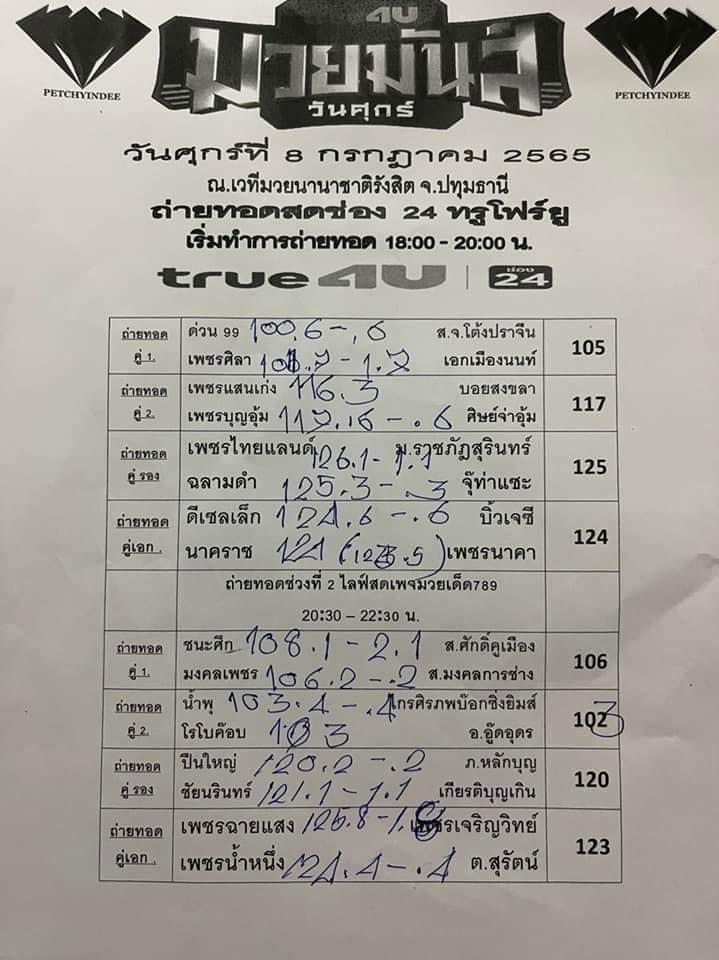 true4U
มวยมันส์
วันศุกร์
PETCHYINDEE
PETCHYINDEE
วันศุกร์ที่ 8 กรกฎาคม 2565
ณ.เวทีมวยนานาชาติรังสิต จ.ปทุมธานี
ถ่ายทอดสดช่อง 24 ทรูโฟร์ยู
เริ่มทำการถ่ายทอด 18:00 - 20:00 น.
true4U ช่อง 24
ถ่ายทอด คู่ 1. 105
ด่วน 99 100.6-.6 ส.จ.โต้งปราจีน
เพชรศิลา 1.7 เอกเมืองนนท์
ถ่ายทอด คู่ 2. 117
เพชรแสนเก่ง 116.3 บอยสงขลา
เพชรบุญอุ้ม 117.6-.6 ศิษย์จ่าอุ้ม
ถ่ายทอด คู่ รอง 125
เพชรไทยแลนด์ 126.1-1.1 ม.ราชภัฎสุรินทร์
ฉลามดำ 125.3-.3 จุ๊ท่าแซะ
ถ่ายทอด คู่เอก . 124
ดีเซลเล็ก 124.6-.6 บิ้วเจซี
นาคราช 124 (123.5) เพชรนาคา
ถ่ายทอดช่วงที่ 2 ไลฟ์สดเพจมวยเด็ด789
20:30 – 22:30 น.
ถ่ายทอด คู่ 1. 106
ชนะศึก 108.1-2.1 ส.ศักดิ์คูเมือง
มงคลเพชร 106.2-.2 ส.มงคลการช่าง
ถ่ายทอด คู่ 2. 102 3
น้ำพุ 103.4-.4 ไกรศิรภพบ๊อกซิ่งยิมส์
โรโบค๊อบ 103 อ.อู๊ดอุดร
ถ่ายทอด คู่ รอง 120
ปืนใหญ่ 120.2-.2 ภ.หลักบุญ
ชัยนรินทร์ 121.1-1.1 เกียรติบุญเกิน
ถ่ายทอด คู่เอก . 123
เพชรฉายแสง 125.8-1.8 เพชรเจริญวิทย์
เพชรน้ำหนึ่ง 124.4-.4 ต.สุรัตน์